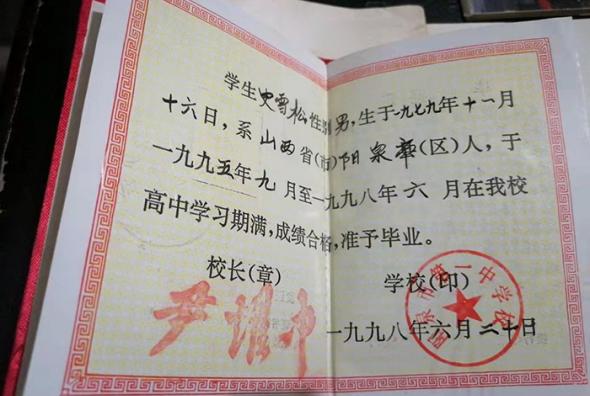 学生史雪松性别男,生于一九七九年十一月
十六日,系山西省(市)阳泉县(区)人,于
一九九五年九月至一九九八年六月在我校
高中学习期满,成绩合格,准予毕业。
校长(章) 学校(印)
尹
阳泉市第一中学校
一九九八年六月二十日